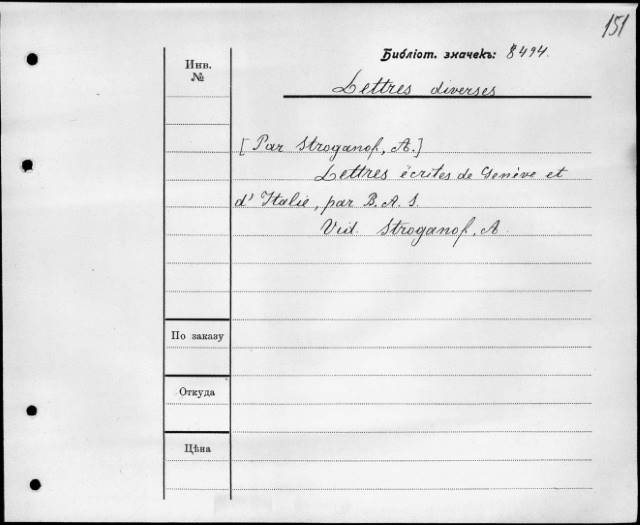 151
Библіот. значекъ: 8494.
Инв.
№
Lettres diverses
[Par Stroganof, A.]
Lettres écrites de Genève et
d'Italie, par B. A. S.
Vid. Stroganof, A.
По заказу
Откуда
Цѣна